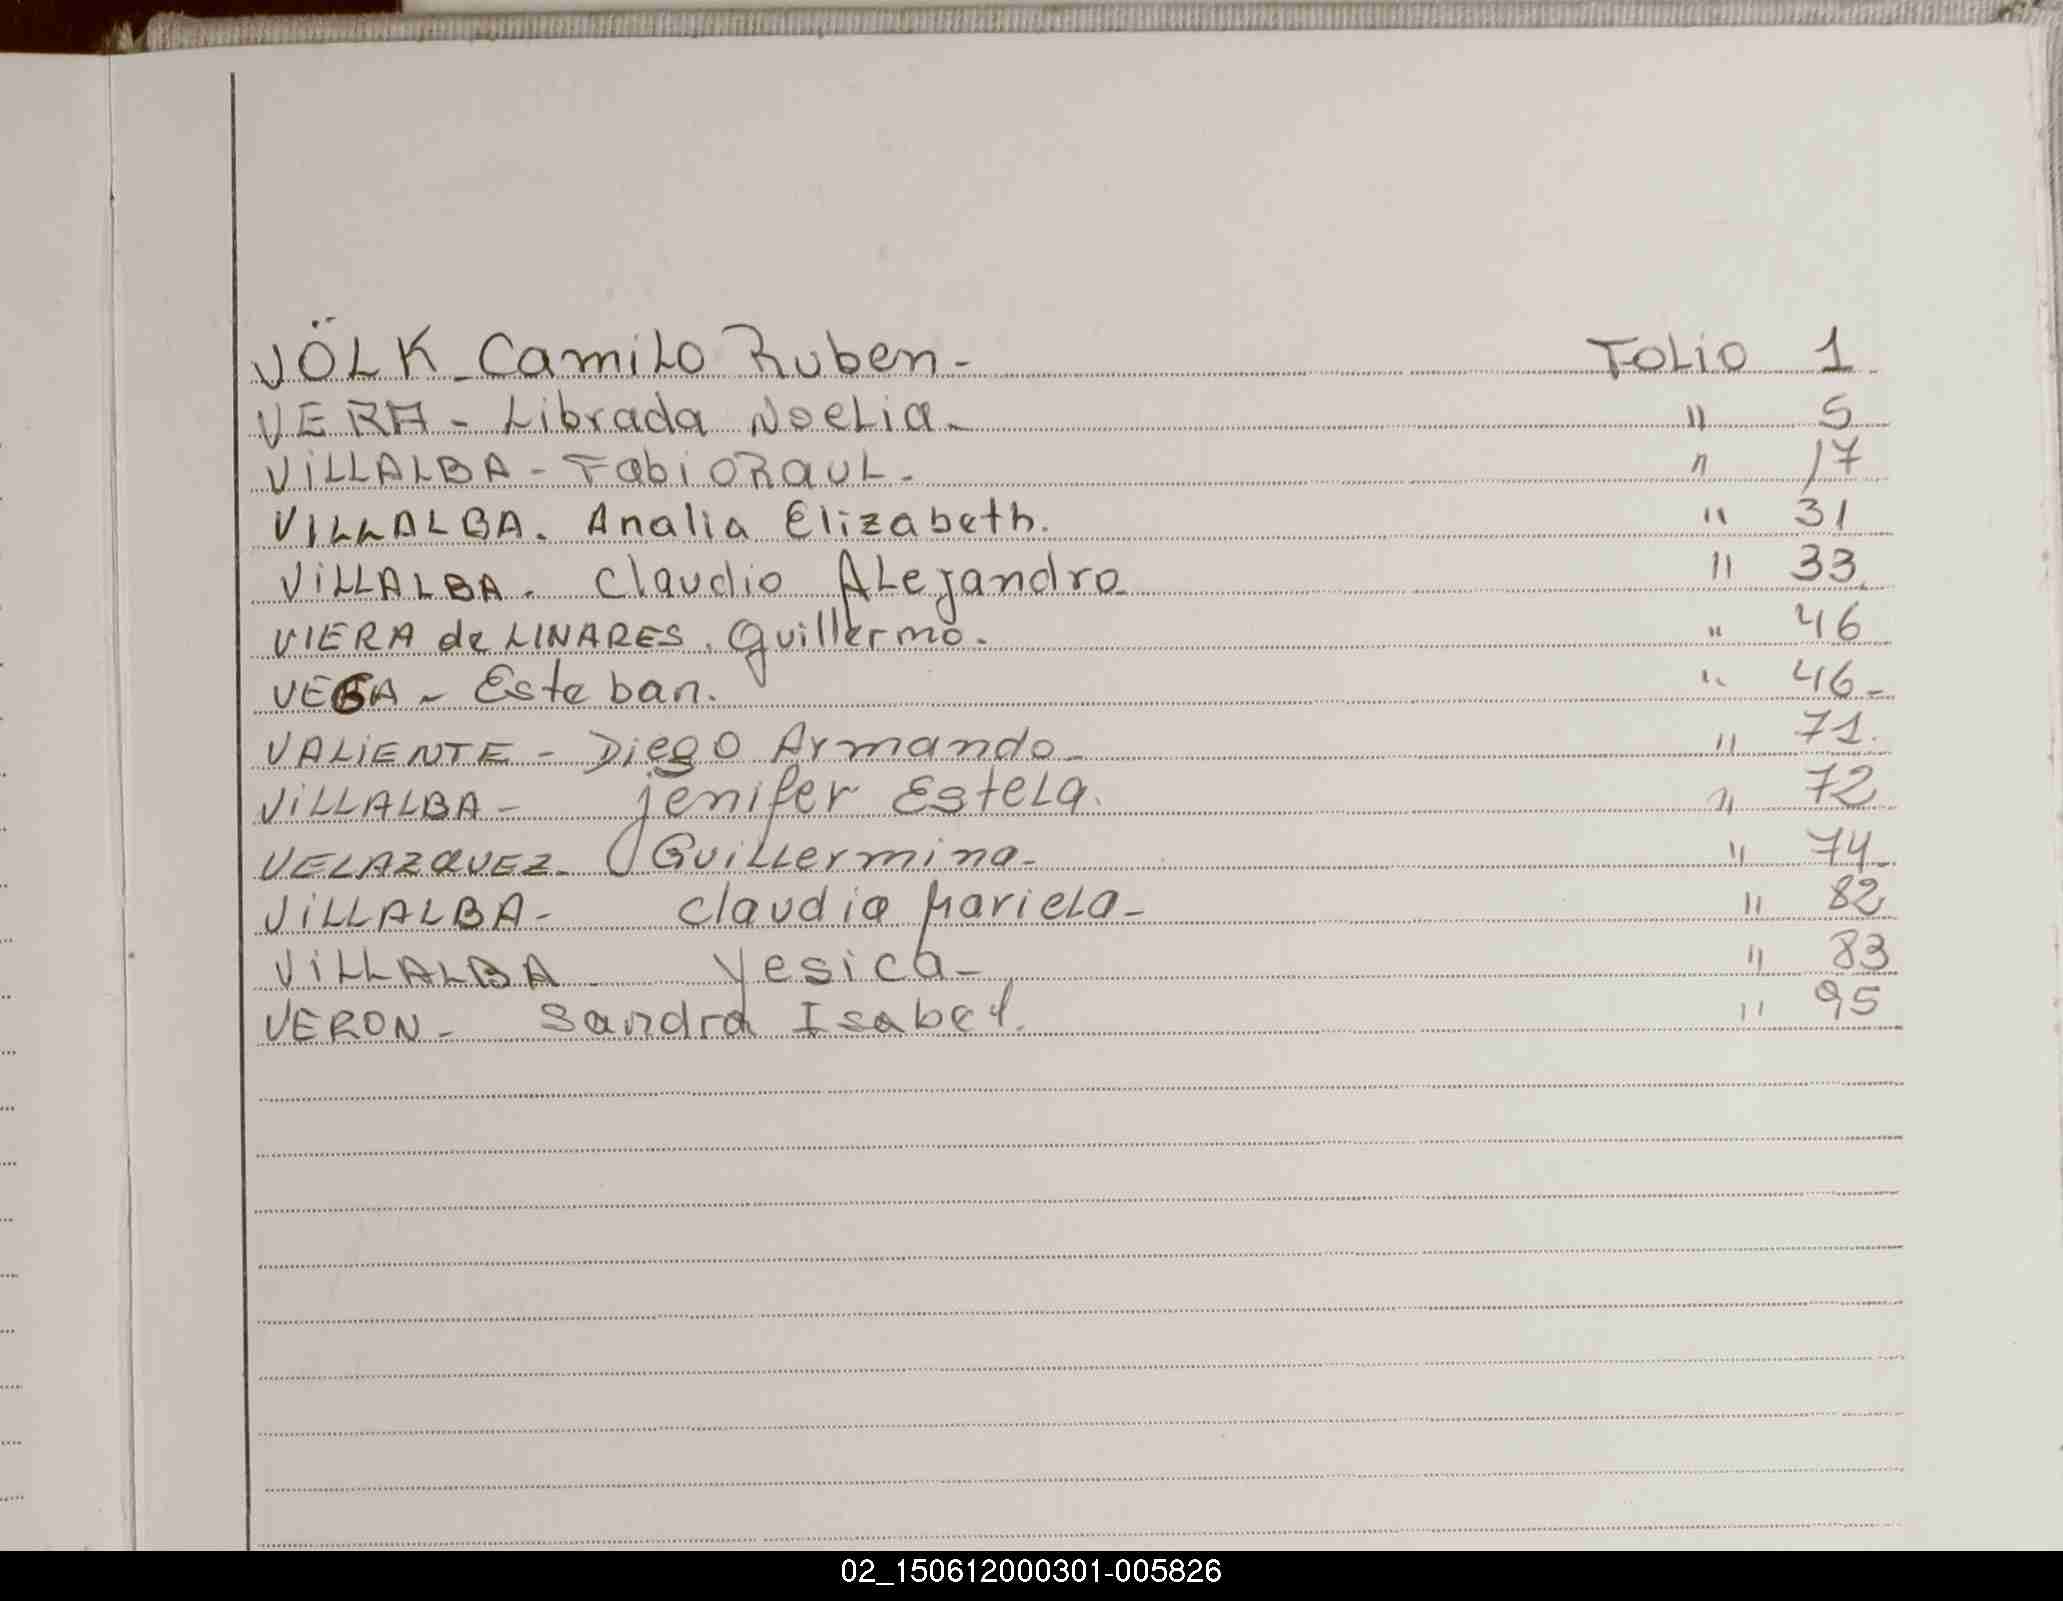 VÖLK - Camilo Ruben - Folio 1
VERA - Librada Noelia - " 5
ViLLALBA - Fabio Raul - " 17
VILLALBA. Analia Elizabeth. " 31
ViLLALBA. Claudio Alejandro " 33
VIERA de LINARES. Guillermo. " 46
VEGA - Esteban. " 46-
VALiENTE - Diego Armando - " 71.
ViLLALBA - jenifer Estela. " 72
VELAZQUEZ - Guillermina - " 74
ViLLALBA - Claudia Mariela - " 82
ViLLALBA Yesica - " 83
VERON - Sandra Isabel. " 95
02_150612000301-005826